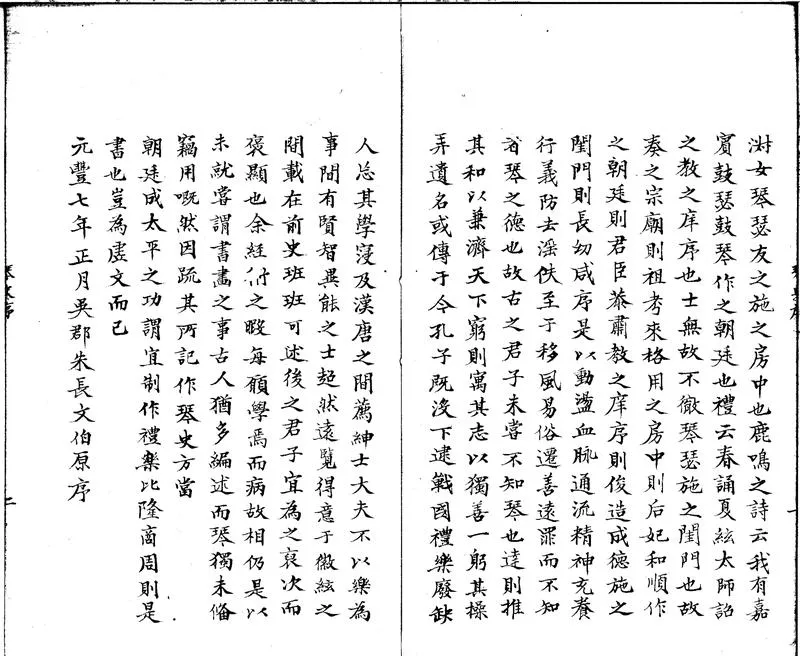 淑女琴瑟友之施之房中也鹿鳴之詩云我有嘉
賓鼓瑟鼓琴作之朝廷也禮云春誦夏絃太師詔
之教之庠序也士無故不徹琴瑟施之閨門也故
奏之宗廟則祖考來格用之房中則后妃和順作
之朝廷則君臣恭肅教之庠序則俊造成德施之
閨門則長幼咸序是以動盪血脉通流精神充養
行義防去淫佚至于移風易俗遷善遠罪而不知
者琴之德也故古之君子未嘗不知琴也達則推
其和以兼濟天下窮則寓其志以獨善一躬其操
弄遺名或傳于今孔子既沒下逮戰國禮樂廢缺
人忘其學寖及漢唐之間薦紳士大夫不以樂為
事間有賢智異能之士超然遠覽得意于徽絃之
間載在前史班班可述後之君子宜為之裒次而
褒顯也余經術之暇每願學焉而病故相仍是以
未就嘗謂書畫之事古人猶多編述而琴獨未備
竊用嘅然因疏其所記作琴史方當
朝廷成太平之功謂宜制作禮樂比隆商周則是
書也豈為虛文而已
元豐七年正月吳郡朱長文伯原序